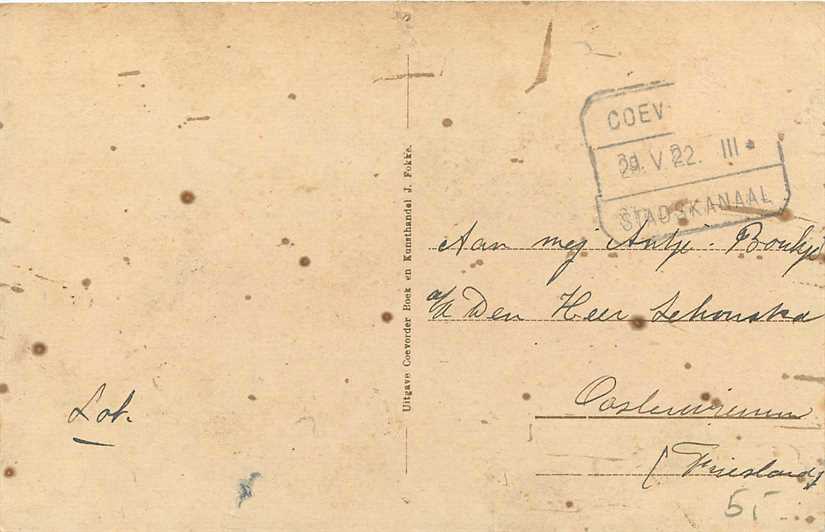 COEV
29.V.22. III
STADSKANAAL
Aan mej Antje. Boukje
a/d Den Heer
(Friesland)
Lot.
5,-
Uitgave Coevorder Boek en Kunsthandel J. Fokke.